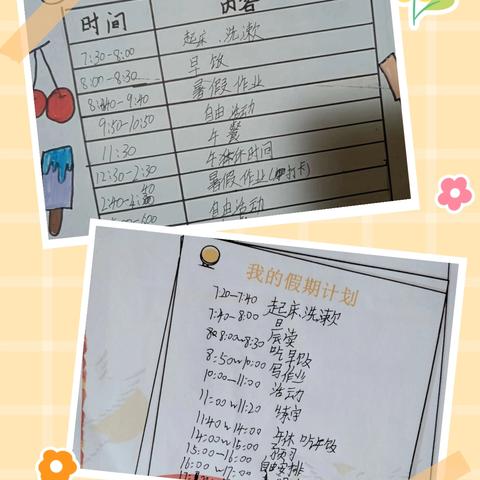 时间 内容
7:30-8:00 起床、洗漱
8:00-8:30 早饭
8:40-9:40 暑假作业
9:50-10:50 自由活动
11:30 午餐
12:30-2:30 午休时间
暑假作业(打卡)
自由活动
我的假期计划
7:20-7:40 起床、洗漱
7:40-8:00 晨读
8:00~8:30 吃早饭
8:50~10:00 写作业
10:00-11:00 活动
11:00~11:20 练字
11:40~14:00 午休 吃午饭
14:00~15:00 预习
15:00-16:00 自由安排
16:00~17:00